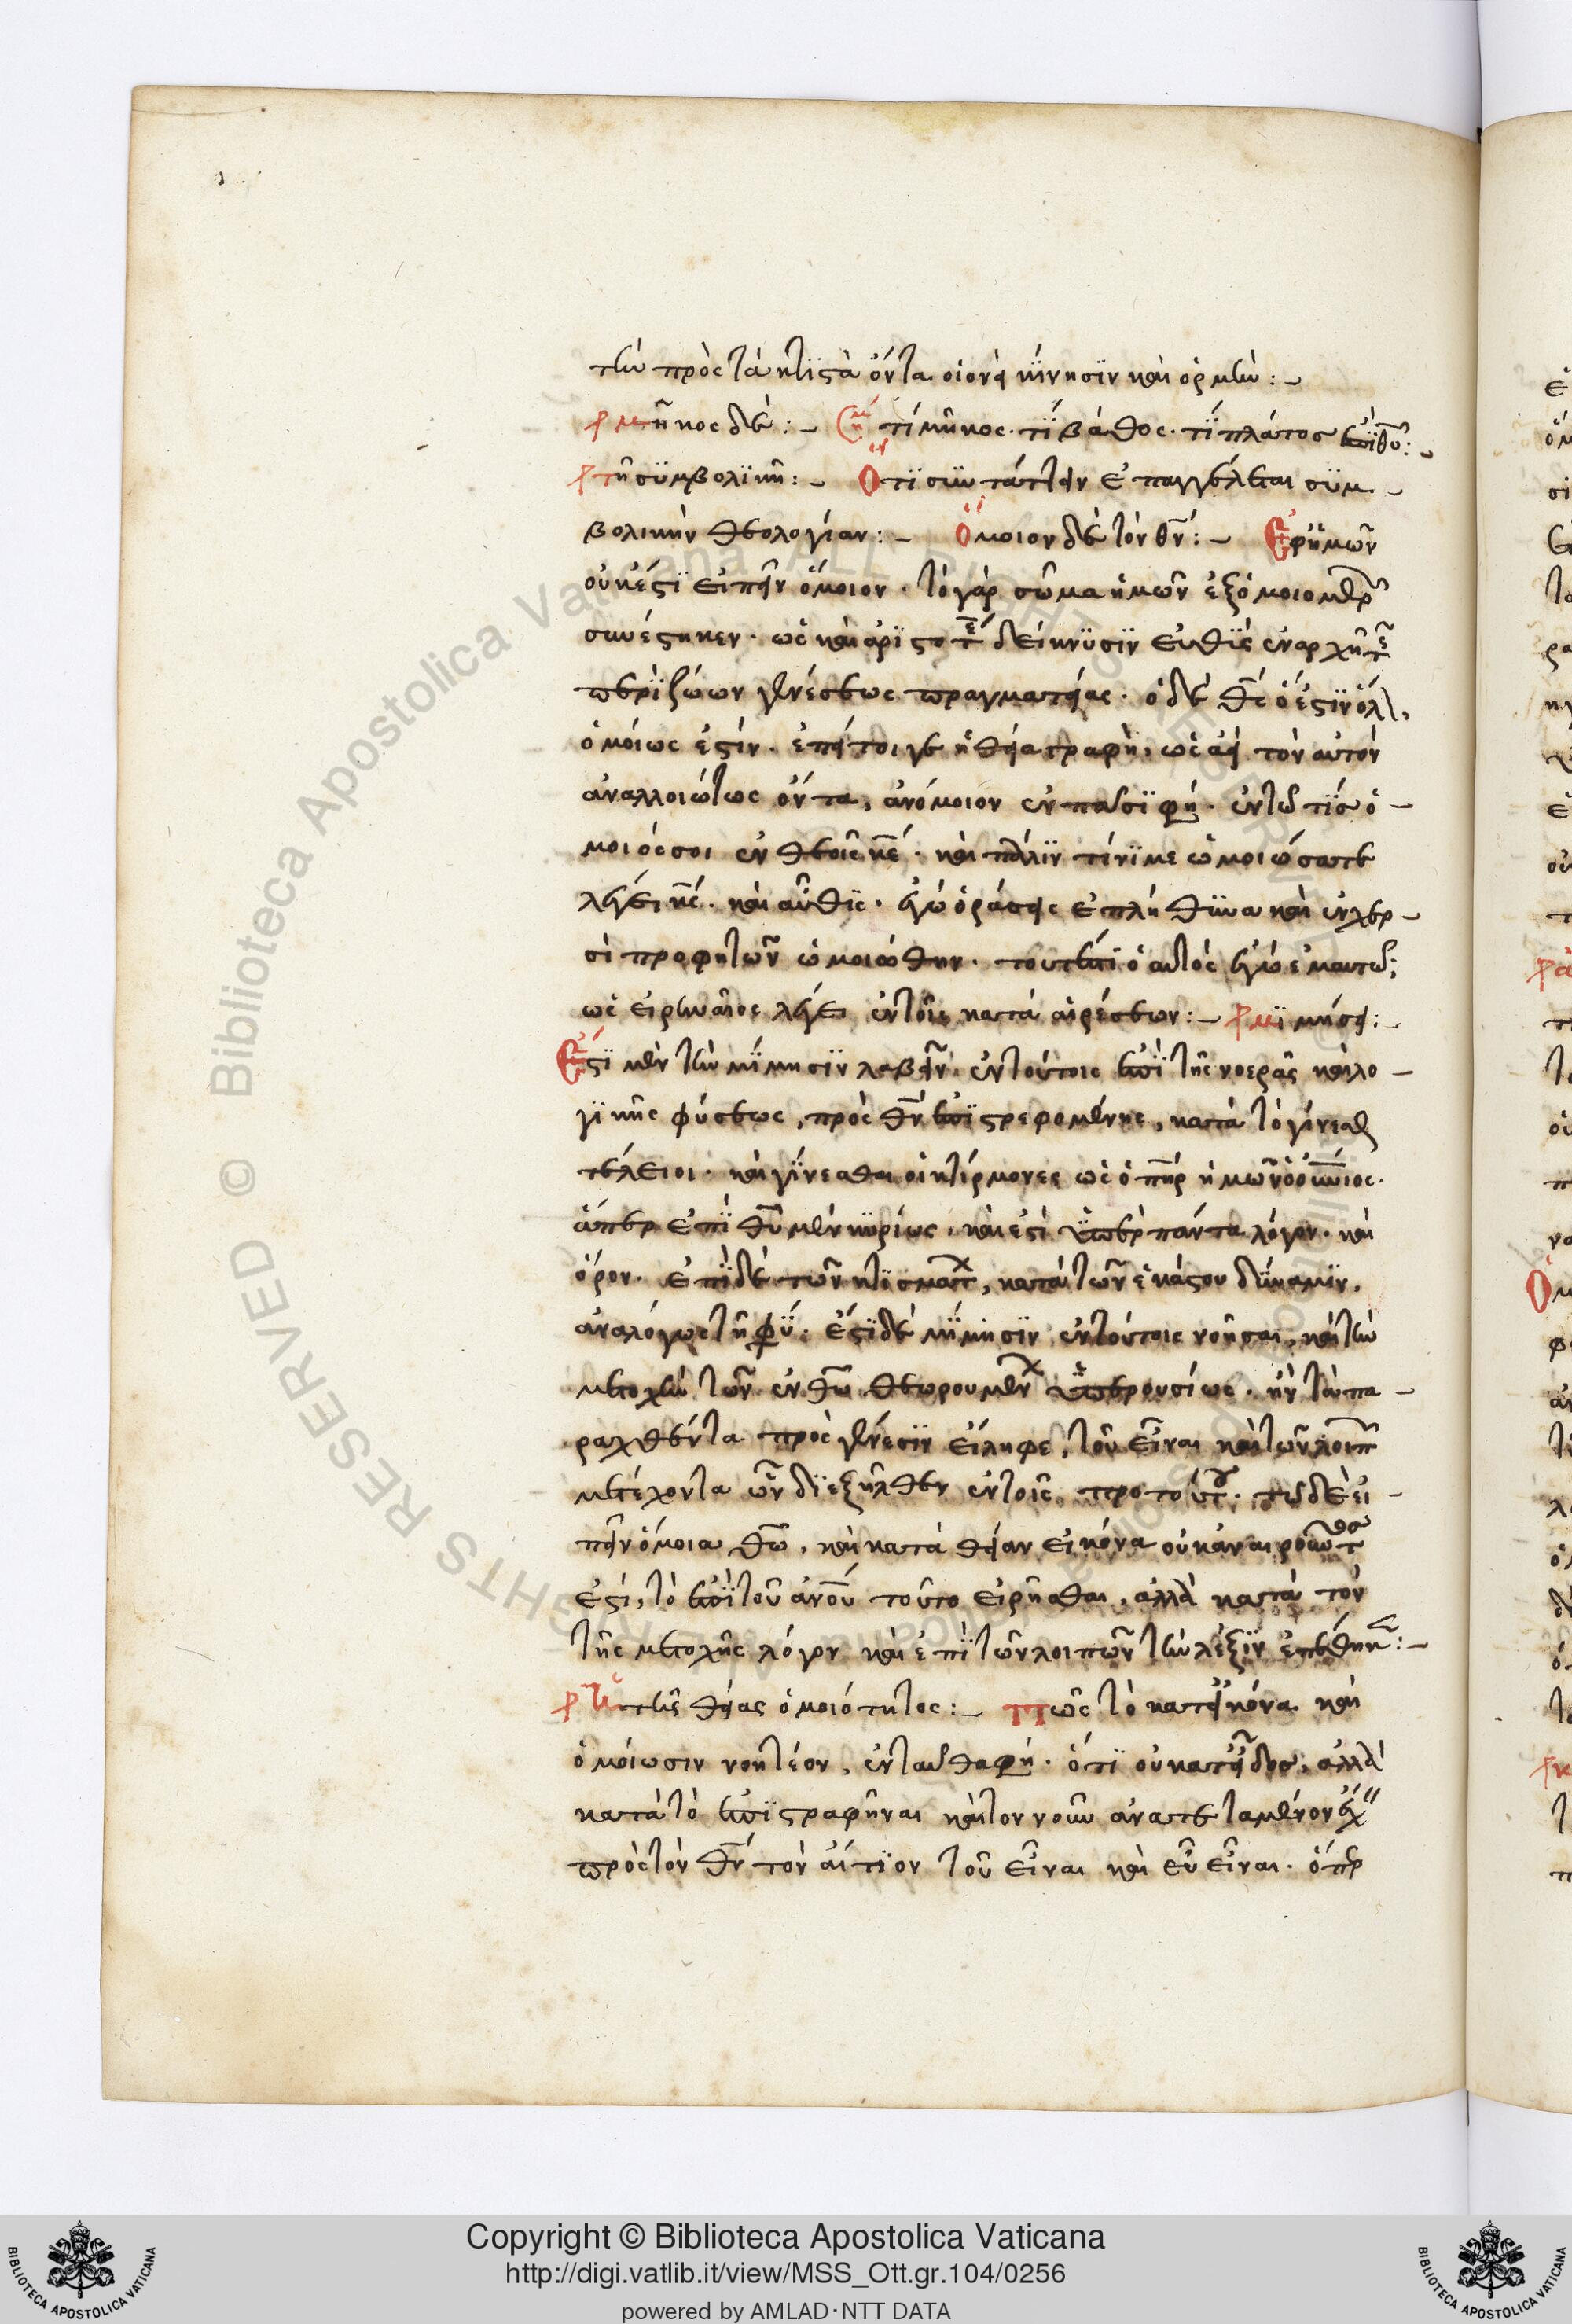 τὴν πρὸς τὰ κτιστὰ ὄντα οἱονεὶ κίνησιν καὶ ὁρμήν :-
μῆκος δὲ :- τί μῆκος· τί βάθος· τί πλάτος ἐπὶ θυ :-
τῇ συμβολικῇ :- Ὅτι συντάττειν ἐπαγγέλεται συμ-
βολικὴν θεολογίαν :- Ὅμοιον δὲ τὸν θν :- Ἐφ' ἡμῶν
οὐκ ἔστιν εἰπεῖν ὅμοιον· τὸ γὰρ σῶμα ἡμῶν ἐξ ὁμοιομερ
συνέστηκεν· ὡς καὶ ἀριστοτε δείκνυσιν εὐθὺς ἐν ἀρχῇ τ
περὶ ζώων γενέσεως πραγματείας· ὁ δὲ θς ὅ ἐστιν ὅλ
ὁμοίως ἐστίν· ἐπεί τοι γε ἡ θεία γραφὴ, ὡς ἀεὶ τὸν αὐτὸν
ἀναλλοιώτως ὄντα, ἀνόμοιον ἐν πᾶσί φη· ἐν τῷ τίς ὅ-
μοιός σοι ἐν θεοῖς κε· καὶ πάλιν τίνι με ὡμοιώσατε
λέγει κς· καὶ αὖθις· ἐγὼ ὁράσεις ἐπλήθυνα καὶ ἐν χερ-
σὶ προφητῶν ὡμοιώθην· τουτέστι ὁ αὐτὸς ἐγὼ ἐμαυτῷ;
ὡς εἰρηναῖος λέγει ἐν τοῖς κατὰ αἱρέσεων :- μιμήσει :-
Ἔστι μὲν τὴν μίμησιν λαβεῖν ἐν τούτοις ἐπὶ τῆς νοερᾶς καὶ λο-
γικῆς φύσεως, πρὸς θν ἐπιστρεφομένης, κατὰ τὸ γίνεσθ
τέλειοι· καὶ γίνεσθαι οἰκτίρμονες ὡς ὁ πηρ ἡμῶν ὁ οὐνιος·
ἅπερ ἐπὶ θυ μὲν κυρίως, καὶ ἐστὶ ὑπὲρ πάντα λόγον· καὶ
ὅρον· ἐπὶ δὲ τῶν κτισμάτ, κατὰ τῶν ἑκάστου δύναμιν,
ἀναλόγως τῇ φύ· ἔστι δὲ μίμησιν ἐν τούτοις νοῆσαι, καὶ τὴν
μετοχὴν τῶν ἐν θω θεωρουμέν ὑπερουσίως· ἣν τὰ πα-
ραχθέντα πρὸς γένεσιν εἴληφε, τοῦ εἶναι καὶ τῶν λοιπ
μετέχοντα ὧν διεξῆλθεν ἐν τοῖς πρὸ τούτ· τῷ δὲ εἰ-
πεῖν ὅμοια θω, καὶ κατὰ θείαν εἰκόνα οὐκ ἀναιροῦντ
ἐστὶ, τὸ ἐπὶ τοῦ ἀνου τοῦτο εἰρῆσθαι, ἀλλὰ κατὰ τὸν
τῆς μετοχῆς λόγον καὶ ἐπὶ τῶν λοιπῶν τὴν λέξιν ἐπέθηκ :-
τῆς θείας ὁμοιότητος :- Πῶς τὸ κατ' εἰκόνα καὶ
ὁμοίωσιν νοητέον, ἐνταῦθα φη· ὅτι οὐ κατ' εἶδος, ἀλλὰ
κατὰ τὸ ἐπιστραφῆναι καὶ τὸν νοῦν ἀνατεταμένον ἔχ
πρὸς τὸν θν τὸν αἴτιον τοῦ εἶναι καὶ εὖ εἶναι· ὅπερ
Copyright © Biblioteca Apostolica Vaticana
http://digi.vatlib.it/view/MSS_Ott.gr.104/0256
powered by AMLAD·NTT DATA